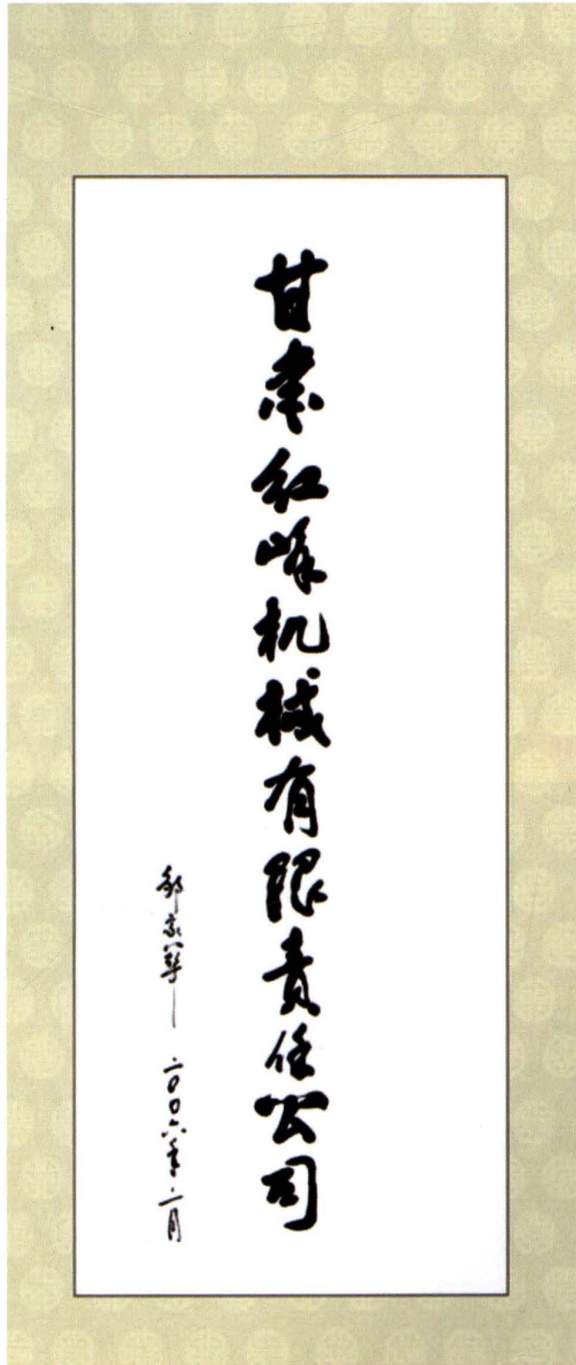 甘肃红峰机械有限责任公司
邹家华 二〇〇六年二月